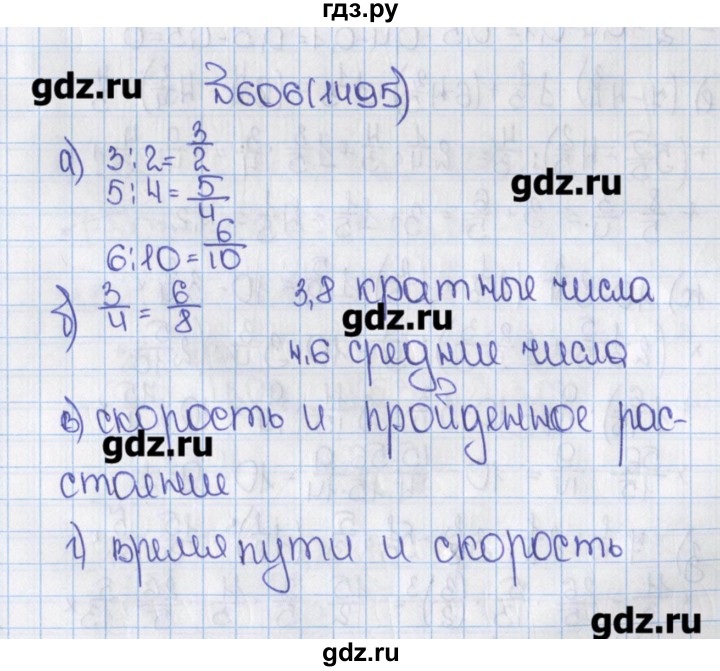 гдз.ру
gdz.ru
№606(1495)
а) 3:2=3/2
5:4=5/4
gdz.ru
6:10=6/10
б) 3/4=6/8
3,8 кратные числа
gdz.ru
4,6 средние числа
в) скорость и пройденное рас-
gdz.ru
стояние
г) время пути и скорость
gdz.ru
gdz.ru